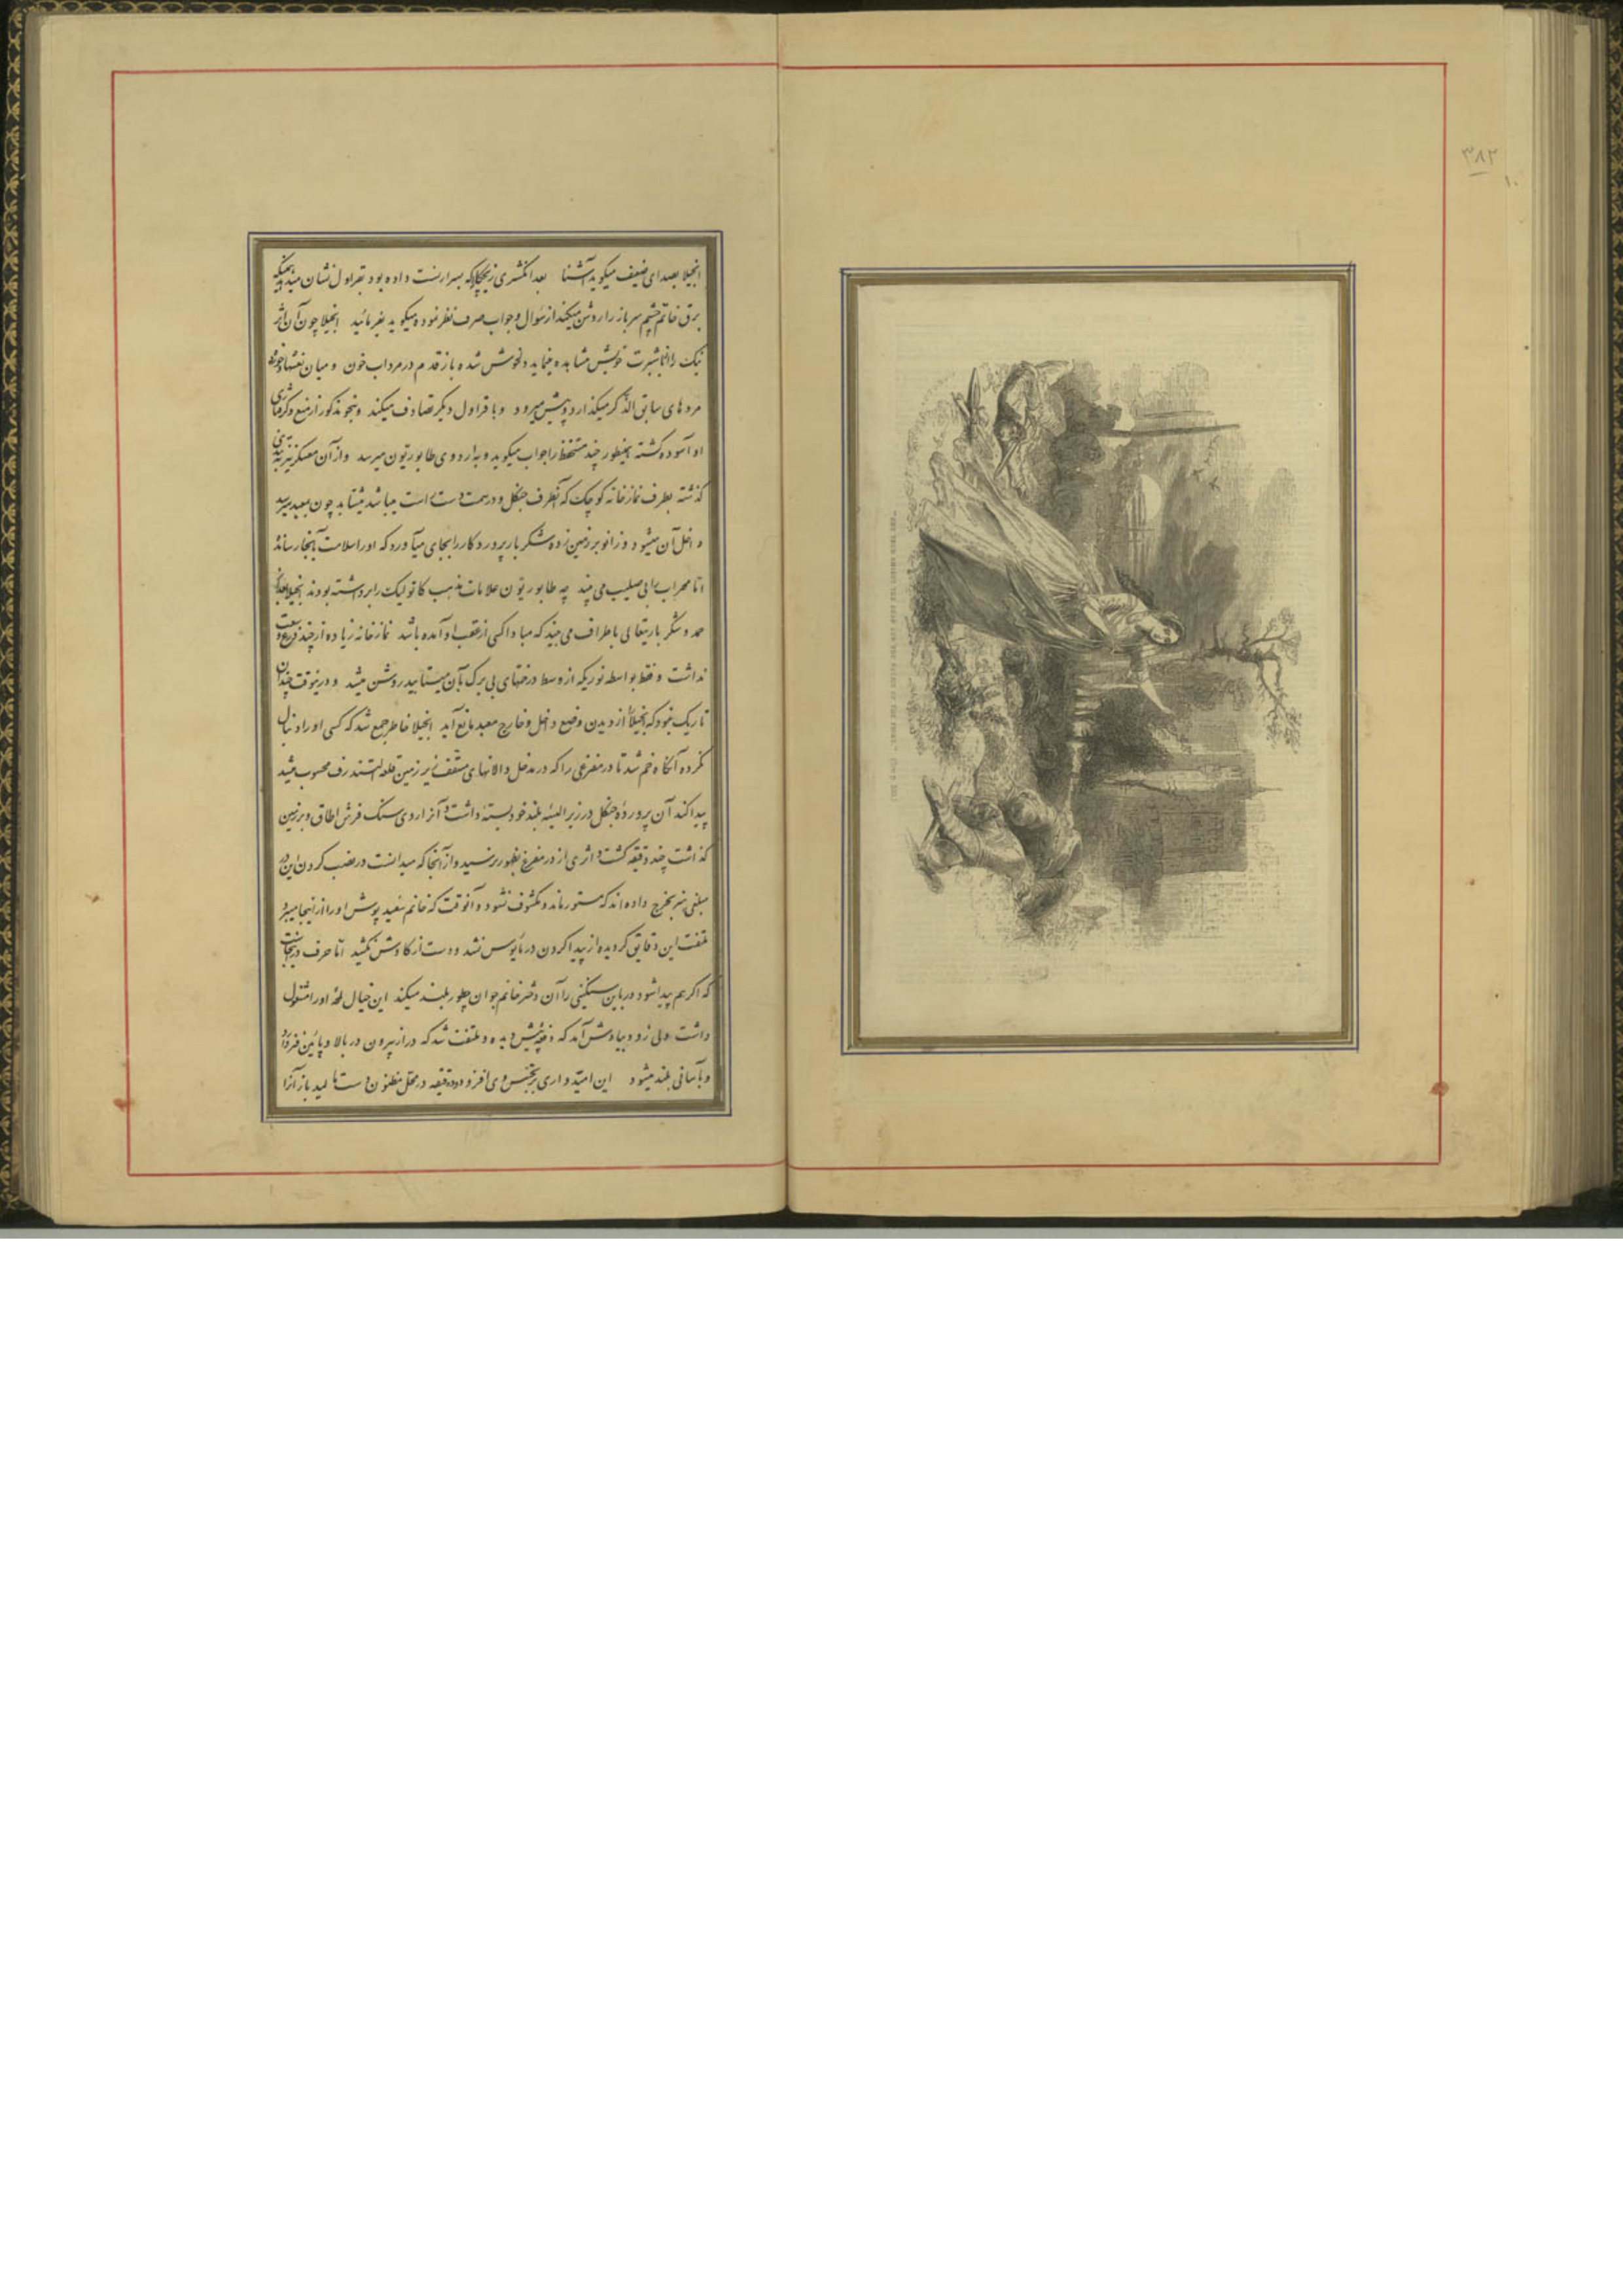 ۳۸۲
۱۰
انجیلا بصدای ضعیف میگوید آشنا بعد انگشتری زیچکا که بسرارنست داده بود بقراول نشان میدهد همینکه
برق خاتم چشم سرباز را روشن میکند از سؤال و جواب صرف نظر نموده میگوید بفرمائید انجیلا چون آن اثر
نیک را از خویش مشاهده مینماید دلخوش شده باز قدم در مرداب خون و میان نعشها
مردهای سابق الذکر میگذارد و پیش میرود و با قراول دیگر تصادف میکند و بنحو مذکور از منع و گرفتاری
او آسوده گشته بهمینطور چند مستحفظ را جواب میگوید و به اردوی طابوریتون میرسد و از آن معسکر نیز
گذشته بطرف نمازخانه کوچک که آنطرف جنگل و در سمت دست راست میباشد میشتابد چون بمعبد میرسد
داخل آن میشود و زانو بر زمین زده شکر بار پروردکار را بجای میآورد که او را سلامت بآنجا رسانده
اما محراب را بی صلیب می بیند چه طابوریتون علامات مذهب کاتولیک را برداشته بودند انجیلا بعد از
حمد و شکر باریتعالی باطراف می بیند که مبادا کسی از عقب او آمده باشد نمازخانه زیاده از چند ذرع وسعت
نداشت و فقط بواسطه نوریکه از وسط درختهای بی برک بآن میتابید روشن میشد و در اینوقت چندان
تاریک نبود که انجیلا را از دیدن وضع داخل و خارج معبد مانع آید انجیلا خاطر جمع شد که کسی او را دنبال
نکرده آنگاه خم شد تا در مفرغی را که در مدخل دالانهای مسقف زیر زمین قلعه التندرف محسوب میشد
پیدا کند آن پرورده جنگل در زیر البسه بلند خود بسته داشت آنرا روی سنک فرش اطاق و بر زمین
گذاشت چند دقیقه گشت و اثری از در مفرغ بظهور نرسید و از آنجا که میدانست در نصب کردن این در
مبلغی هنر بخرج داده اند که مستور ماند و مکشوف نشود و آنوقت که خانم سفید پوش او را از اینجا میبرد
ملتفت این دقایق گردیده از پیدا کردن در مأیوس نشد و دست از کاوش نکشید اما حرف در اینجاست
که اگر هم پیدا شود در باین سنگینی را آن دختر خانم جوان چطور بلند میکند این خیال او را مشغول
داشت ولی زود بیادش آمد که دفعه پیش دیده و ملتفت شد که در از بیرون در بالا و پائین
و بآسانی بلند میشود این امیدواری بر تجسس وی افزود و دو دقیقه در محل مظنون دست مالید باز آنرا